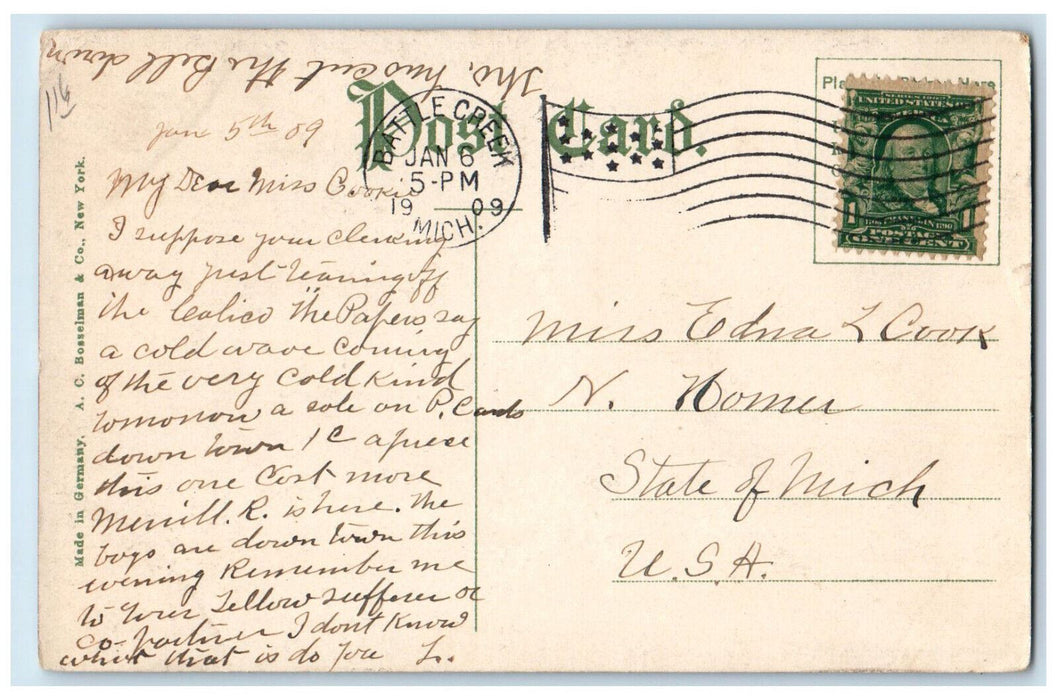 Post Card.
BATTLE CREEK
JAN 6
5-PM
1909
MICH.
SERIES 1902
UNITED STATES OF AMERICA
1 1
POSTAGE
ONE CENT
Made in Germany. A. C. Bosselman & Co., New York.
116
Jan 5th 09
My Dear Miss Cookie
I suppose your clerking
away just tearing off
the Calico The Papers say
a cold wave coming
of the very cold kind
tomorrow a sale on P. Cards
down town 1c apiece
this one cost more
Merrill. R. is here. the
boys are down town this
evening Remember me
to your Fellow sufferer or
co-partner I dont know
which that is do you L.
the Bell down
Miss Edna L Cook
N. Homer
State of Mich
U.S.A.